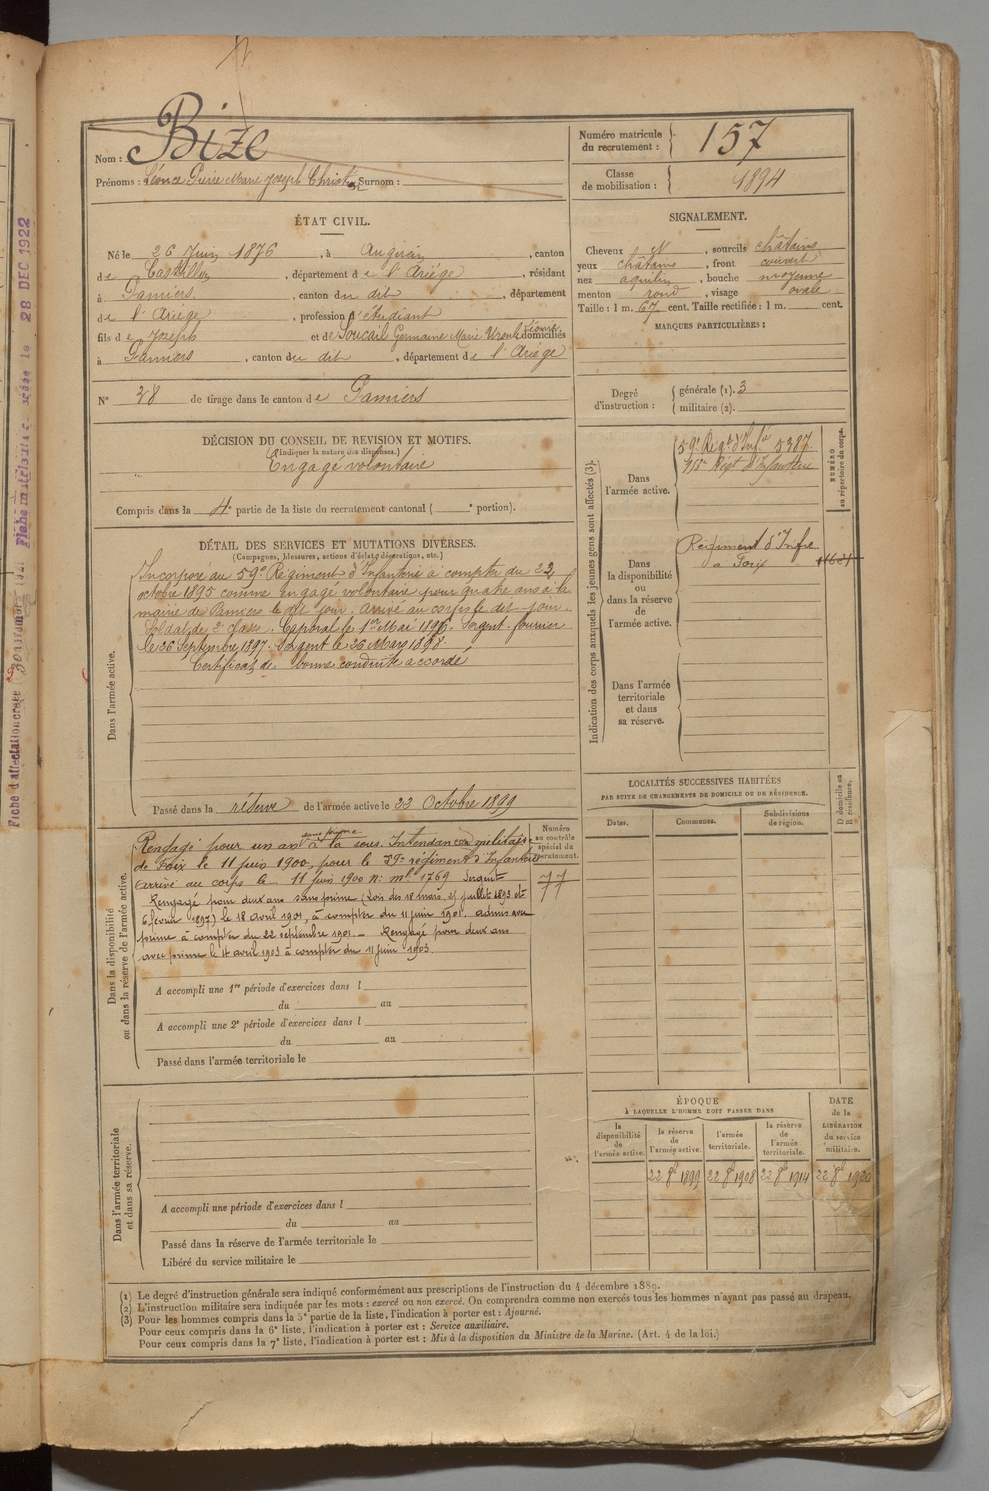 Nom : Bize
Prénoms : Léonce Pierre Marie Joseph Christ Surnom :
Numéro matricule du recrutement : 157
Classe de mobilisation : 1894
ÉTAT CIVIL.
Né le 26 Juin 1876, à Augirein, canton
de Castillon, département de l'Ariége, résidant
à Pamiers, canton du dit, département
de l'Ariége, profession d'étudiant
fils de Joseph et de Soucail Germaine Marie Ursule domiciliés
à Pamiers, canton du dit, département de l'Ariége
N° 28 de tirage dans le canton de Pamiers
SIGNALEMENT.
Cheveux N, sourcils châtains
yeux châtains, front couvert
nez aquilin, bouche moyenne
menton rond, visage ovale
Taille : 1 m. 67 cent. Taille rectifiée : 1 m. cent.
MARQUES PARTICULIÈRES :
Degré d'instruction : générale (1). 3
militaire (2).
DÉCISION DU CONSEIL DE REVISION ET MOTIFS.
(Indiquer la nature des dispenses.)
Engagé volontaire
Compris dans la 4e partie de la liste du recrutement cantonal ( e portion).
DÉTAIL DES SERVICES ET MUTATIONS DIVERSES.
(Campagnes, blessures, actions d'éclat, décorations, etc.)
Dans l'armée active.
Incorporé au 59e Régiment d'Infanterie à compter du 22
octobre 1895 comme Engagé volontaire pour quatre ans à la
mairie de Pamiers le dit jour. Arrivé au corps le dit jour.
Soldat de 2e classe. Caporal le 1er Mai 1896. Sergent fourrier
le 26 Septembre 1897. Sergent le 26 Mars 1898.
Certificat de bonne conduite accordé
Passé dans la réserve de l'armée active le 22 Octobre 1899
Dans la disponibilité ou dans la réserve de l'armée active.
Numéro au contrôle spécial du recrutement.
77
sans prime
Rengagé pour un an à la sous Intendance militaire
de Foix le 11 juin 1900, pour le 59e régiment d'Infanterie
arrivé au corps le 11 juin 1900 N° mle 1769 Sergent
Rengagé pour deux ans sans prime (Lois des 18 mars, 25 juillet 1893 et
6 février 1897) le 18 avril 1901, à compter du 11 juin 1901. admis avec
prime à compter du 22 septembre 1901. – Rengagé pour deux ans
avec prime le 11 avril 1903 à compter du 11 juin 1903.
A accompli une 1re période d'exercices dans l
du au
A accompli une 2e période d'exercices dans l
du au
Passé dans l'armée territoriale le
Dans l'armée territoriale et dans sa réserve.
A accompli une période d'exercices dans l
du au
Passé dans la réserve de l'armée territoriale le
Libéré du service militaire le
Indication des corps auxquels les jeunes gens sont affectés (3).
NUMÉRO au répertoire du corps.
Dans l'armée active.
59e Régt d'Infie 5387
Régt d'Infanterie
Dans la disponibilité ou dans la réserve de l'armée active.
Régiment d'Infie
à Foix
Dans l'armée territoriale et dans sa réserve.
LOCALITÉS SUCCESSIVES HABITÉES
PAR SUITE DE CHANGEMENTS DE DOMICILE OU DE RÉSIDENCE.
D domicile ou R résidence.
Dates. Communes. Subdivisions de région.
ÉPOQUE
À LAQUELLE L'HOMME DOIT PASSER DANS
DATE de la LIBÉRATION du service militaire.
la disponibilité de l'armée active. la réserve de l'armée active. l'armée territoriale. la réserve de l'armée territoriale.
22 8bre 1899 22 8bre 1908 22 8bre 1914 22 8bre 1920
(1) Le degré d'instruction générale sera indiqué conformément aux prescriptions de l'instruction du 4 décembre 1889.
(2) L'instruction militaire sera indiquée par les mots : exercé ou non exercé. On comprendra comme non exercés tous les hommes n'ayant pas passé au drapeau.
(3) Pour les hommes compris dans la 5e partie de la liste, l'indication à porter est : Ajourné.
Pour ceux compris dans la 6e liste, l'indication à porter est : Service auxiliaire.
Pour ceux compris dans la 7e liste, l'indication à porter est : Mis à la disposition du Ministre de la Marine. (Art. 4 de la loi.)
28 DEC 1922